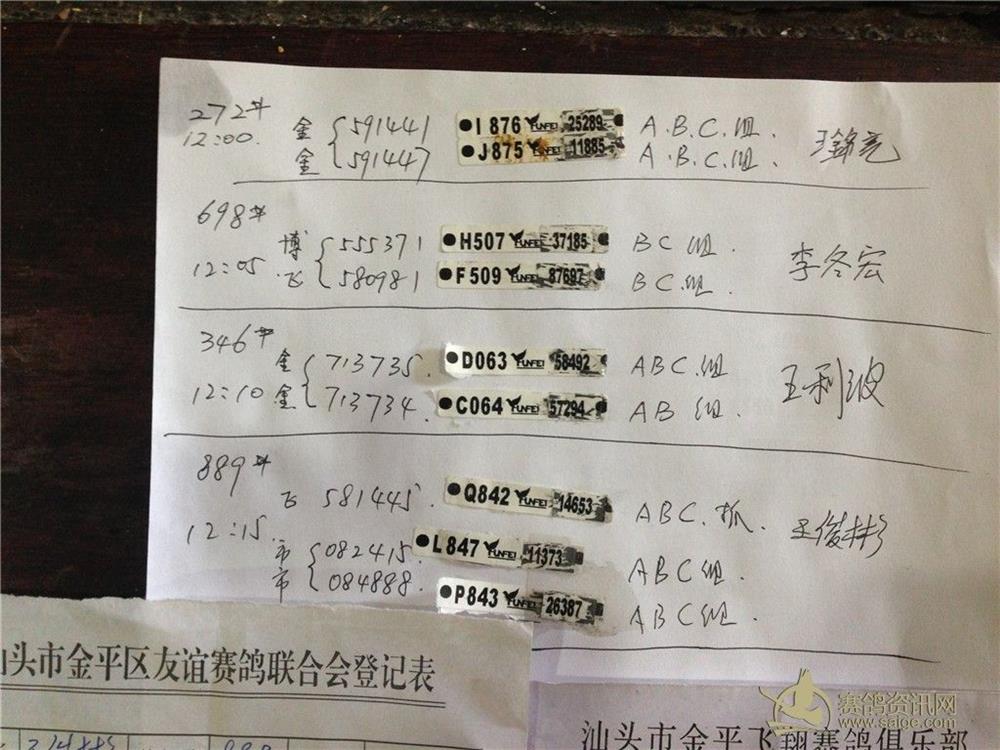 272#
12:00.
金 591441 I 876 YUNFEI 25289 A.B.C.组.
金 591447 J875 11885 A.B.C.组.
王锦亮
698#
12:05
博 555371 H507 YUNFEI 37185 BC组.
飞 580981 F509 YUNFEI 87697 BC.组.
李冬宏
346#
12:10
金 713735. D063 YUNFEI 58492 ABC.组
金 713734. C064 YUNFEI 57294 AB组.
王利波
889#
12:15.
飞 581445. Q842 YUNFEI 14653 ABC.抓.
市 082415. L847 YUNFEI 11373 ABC组.
市 084888. P843 YUNFEI 26387 ABC组.
王俊彬
汕头市金平区友谊赛鸽联合会登记表
汕头市金平飞翔赛鸽俱乐部
赛鸽资讯网
www.saige.com